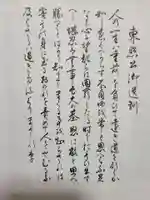 東照公御遺訓
人の一生は重荷を負て遠き道をゆくが
如し いそぐべからず不自由を常と思へば不足
なし心に望おこらば困窮したる時を思ひ出す
べし堪忍は無事長久の基 怒は敵と思へ
勝事ばかり知てまくる事を知らざれば
害其身に至る おのれを責て人を責るな
及ばざるは過たるよりまされり